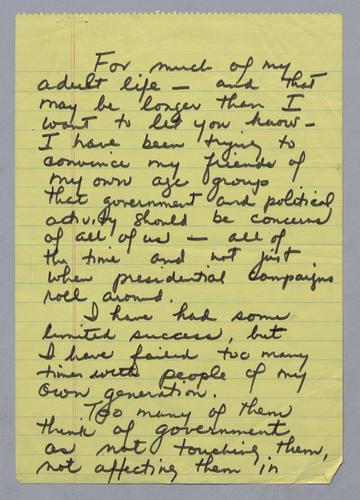 For much of my
adult life — and that
may be longer than I
want to let you know —
I have been trying to
convince my friends of
my own age groups
that government and political
activity should be concerns
of all of us — all of
the time and not just
when presidential campaigns
roll around.
I have had some
limited success, but
I have failed too many
times with people of my
own generation.
Too many of them
think of government
as not touching them,
not affecting them in